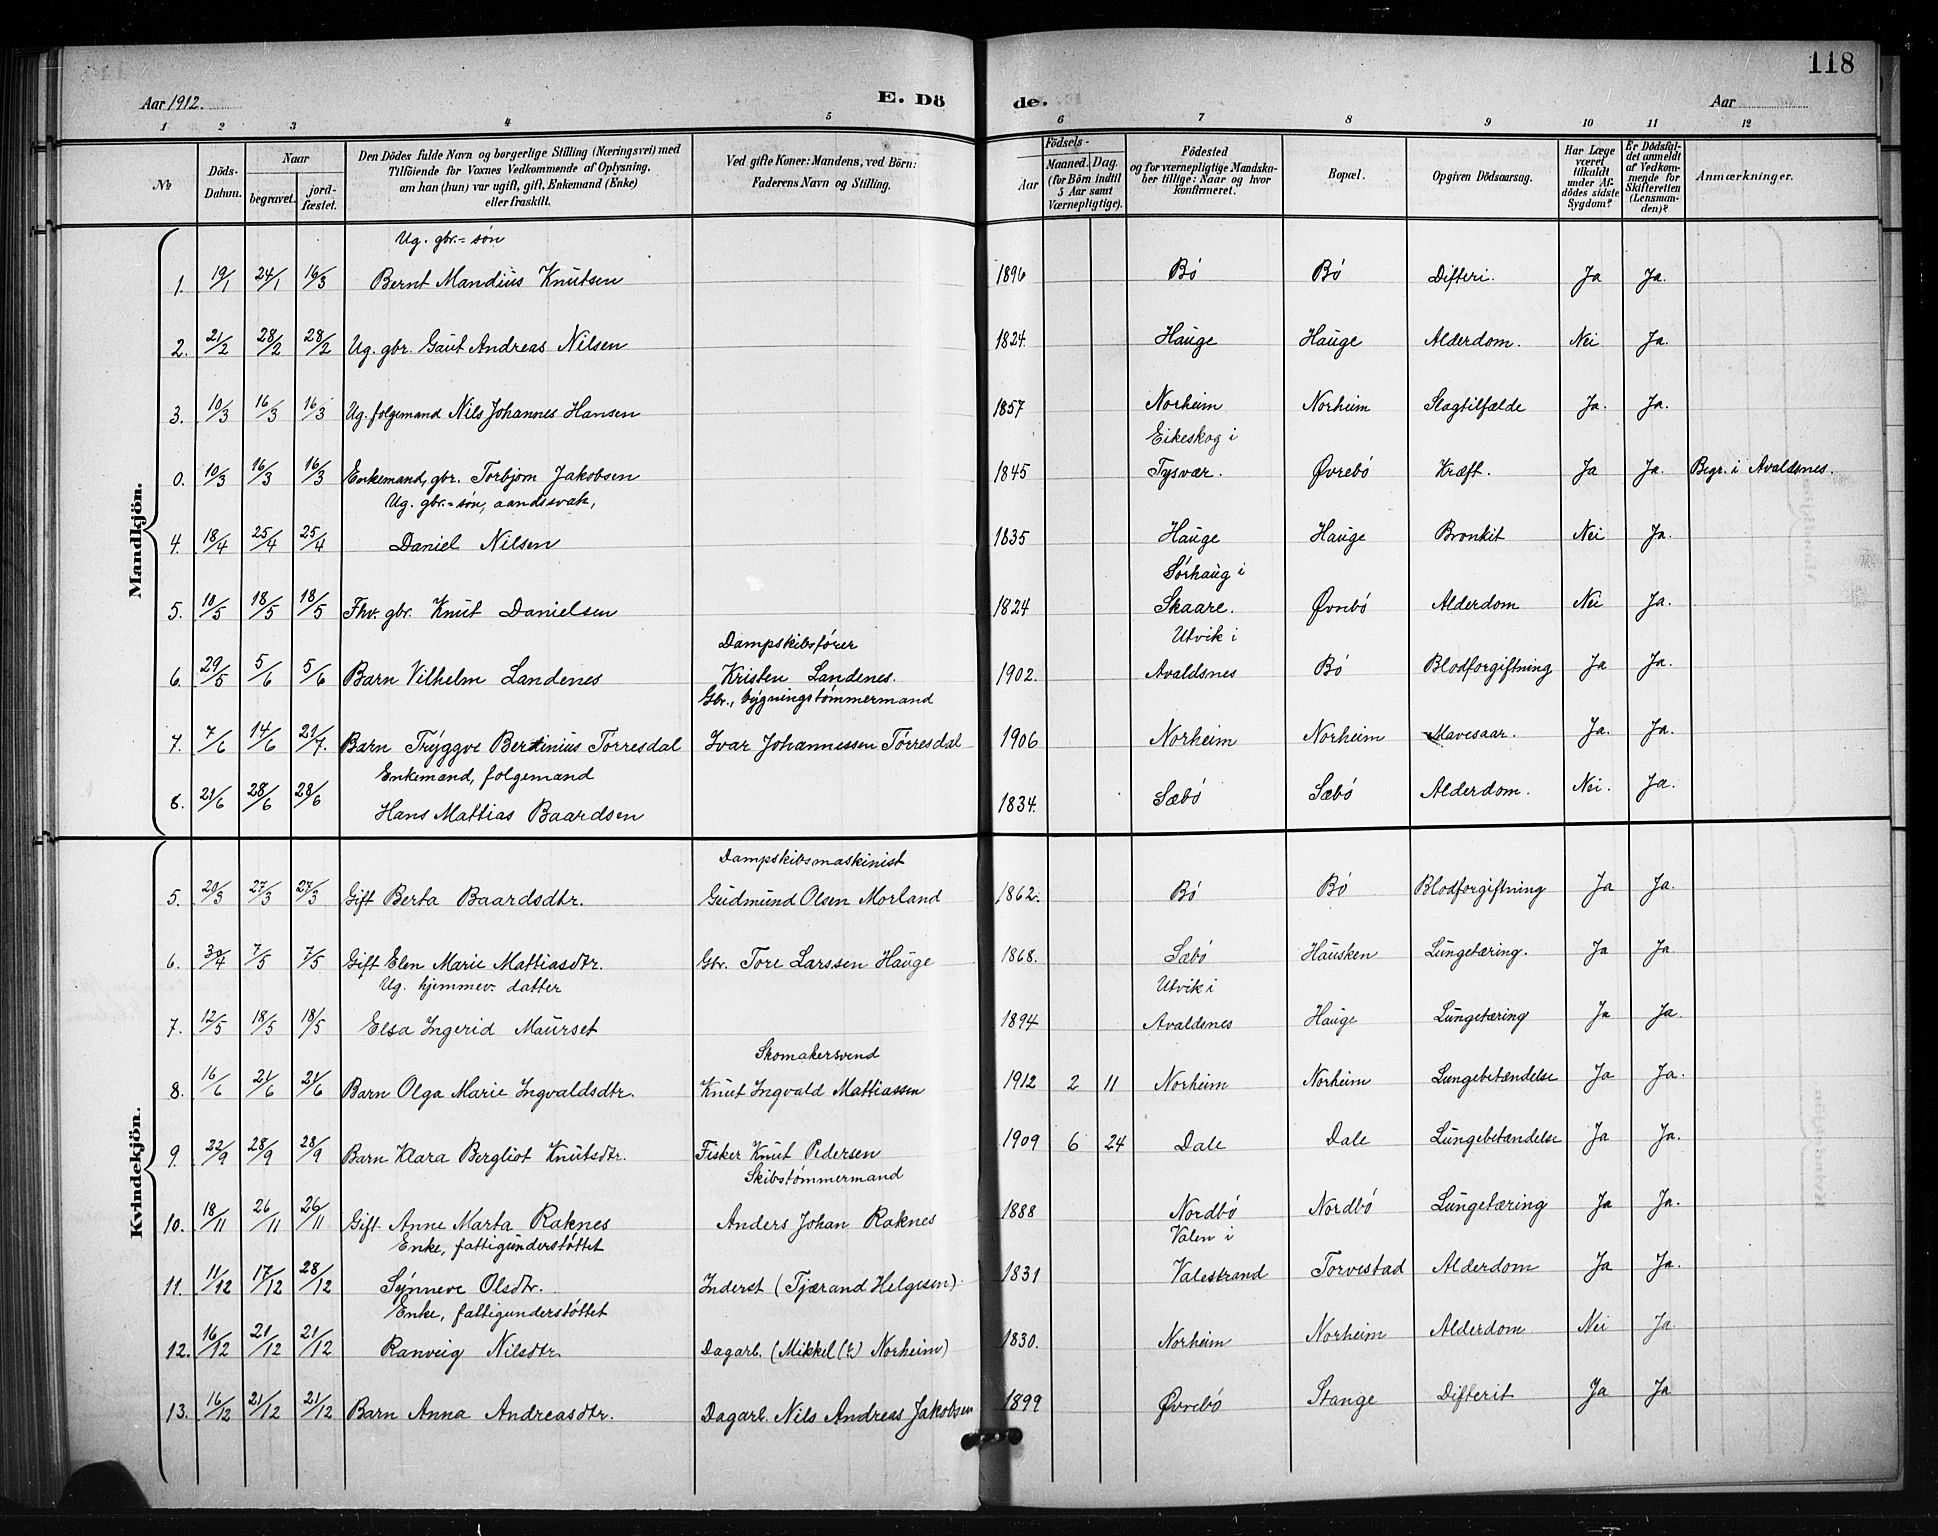 118
Aar 1912.
E. Dö
de.
Aar
1 2 3 4 5 6 7 8 9 10 11 12
№
Döds-Datum.
Naar
begravet.
jord-fæstet.
Den Dödes fulde Navn og borgerlige Stilling (Næringsvei) med
Tilföiende for Voxnes Vedkommende af Oplysning,
om han (hun) var ugift, gift, Enkemand (Enke)
eller fraskilt.
Ved gifte Koner: Mandens, ved Börn:
Faderens Navn og Stilling.
Födsels-
Aar
Maaned. Dag.
(for Börn indtil
5 Aar samt
Værnepligtige).
Födested
og for værnepligtige Mandska-
ber tillige: Naar og hvor
konfirmeret.
Bopæl.
Opgiven Dödsaarsag.
Har Læge
været
tilkaldt
under Af-
dödes sidste
Sygdom?
Er Dödsfal-
det anmeldt
af Vedkom-
mende for
Skifteretten
(Lensman-
den)?
Anmærkninger.
Mandkjön.
Ug. gbr.=søn
1. 19/1 24/1 16/3 Bernt Mandius Knutsen 1896 Bö Bö Difteri. Ja Ja.
2. 21/2 28/2 28/2 Ug. gbr. Gaut Andreas Nilsen 1824. Hauge Hauge Alderdom. Nei Ja.
3. 10/3 16/3 16/3 Ug. folgemand Nils Johannes Hansen 1857 Norheim Norheim Slagtilfælde Ja. Ja.
Eikeskog i
0. 10/3 16/3 16/3 Enkemand, gbr. Torbjørn Jakobsen 1845 Tysvær. Øvrebö Kræft. Ja Ja. Begr. i Avaldsnes.
Ug. gbr.=søn, aandssvak,
4. 18/4 25/4 25/4 Daniel Nilsen 1835 Hauge Hauge Bronkit Nei Ja.
Sørhaug i
5. 10/5 18/5 18/5 Fhv. gbr. Knut Danielsen 1824 Skaare. Øvrebö Alderdom Nei Ja.
Dampskibsfører Utvik i
6. 29/5 5/6 5/6 Barn Vilhelm Landenes Kristen Landenes. 1902. Avaldsnes Bö Blodforgiftning Ja Ja.
Gbr., bygningstømmermand
7. 7/6 14/6 21/7. Barn Tryggve Bertinius Tørresdal Ivar Johannessen Tørresdal 1906 Norheim Norheim Mavesaar. Ja. Ja.
Enkemand, folgemand
8. 21/6 28/6 28/6 Hans Mattias Baardsen 1834. Sæbö Sæbö Alderdom. Nei. Ja.
Kvindekjön.
Dampskibsmaskinist
5. 20/3 27/3 27/3 Gift Berta Baardsdtr. Gudmund Olsen Morland 1862. Bö Bö Blodforgiftning Ja Ja.
6. 30/4 7/5 7/5 Gift Elen Marie Mattiasdtr. Gbr. Tore Larssen Hauge 1868. Sæbö Hausken Lungetæring. Ja Ja
Ug. hjemmev. datter Utvik i
7. 12/5 18/5 18/5 Elsa Ingerid Maurset 1894 Avaldsnes Hauge Lungetæring Ja Ja.
Skomakersvend
8. 16/6 21/6 21/6 Barn Olga Marie Ingvaldsdtr. Knut Ingvald Mattiassen 1912 2 11 Norheim Norheim Lungebetændelse Ja Ja.
9. 22/9 28/9 28/9 Barn Klara Bergliot Knutsdtr. Fisker Knut Pedersen 1909 6 24 Dale Dale Lungebetændelse Ja Ja.
Skibstømmermand
10. 18/11 26/11 26/11 Gift Anne Marta Raknes Anders Johan Raknes 1888 Nordbö Nordbö Lungetæring Ja Ja.
Enke, fattigunderstøttet Valen i
11. 11/12 17/12 28/12 Synneve Olsdtr. Inderst (Tjærand Helgesen) 1831 Valestrand Torvestad Alderdom Ja Ja
Enke, fattigunderstøttet
12. 16/12 21/12 21/12 Ranveig Nilsdtr. Dagarb. (Mikkel Norheim) 1830. Norheim Norheim Alderdom Nei Ja
13. 16/12 21/12 21/12 Barn Anna Andreasdtr. Dagarb. Nils Andreas Jakobsen 1899 Øvrebö Stange Difterit Ja Ja